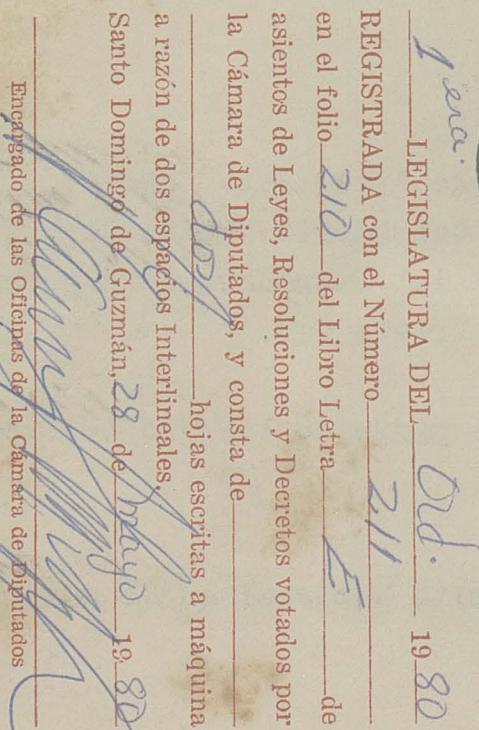 1era. LEGISLATURA DEL Ord. 1980
REGISTRADA con el Número 211
en el folio 210 del Libro Letra E de
asientos de Leyes, Resoluciones y Decretos votados por
la Cámara de Diputados, y consta de
dos hojas escritas a máquina
a razón de dos espacios Interlineales.
Santo Domingo de Guzmán, 28 de Mayo 1980
Encargado de las Oficinas de la Cámara de Diputados